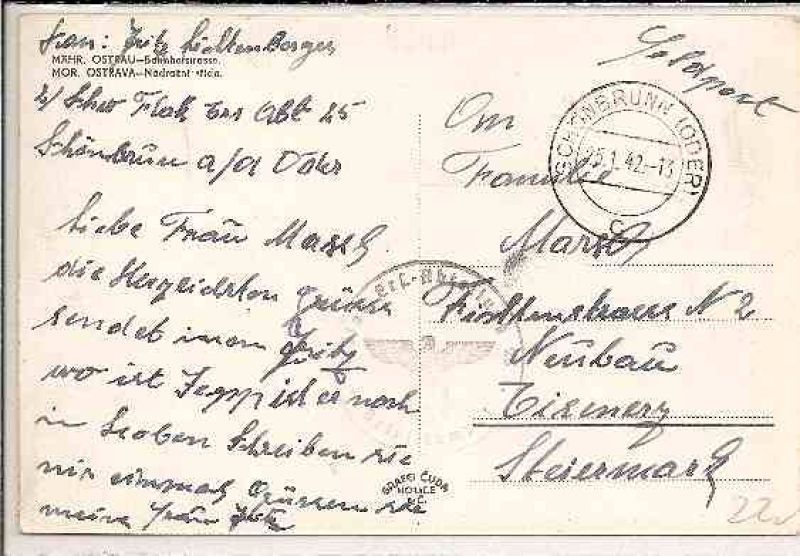 Fritz Lichtenberger
MÄHR. OSTRAU—Bahnhofstrasse.
MOR. OSTRAVA—Nádražní třída.
Flak Ers Abt 25
Schönbrün a/d Oder
Liebe Frau Marsch
die Herzlichsten Grüsse
sendet ihnen Fritz
wo ist Seppi ist er noch
in Leoben Schreiben sie
mir einmahl Grüssen sie
meine Frau Fritz
GRAFO ČUDA
HOLICE
Feldpost
SCHÖNBRUNN (ODER)
25.1.42.-13
c
An
Familie
Marsch
No 2
Neubau
Eisenerz
Steiermark